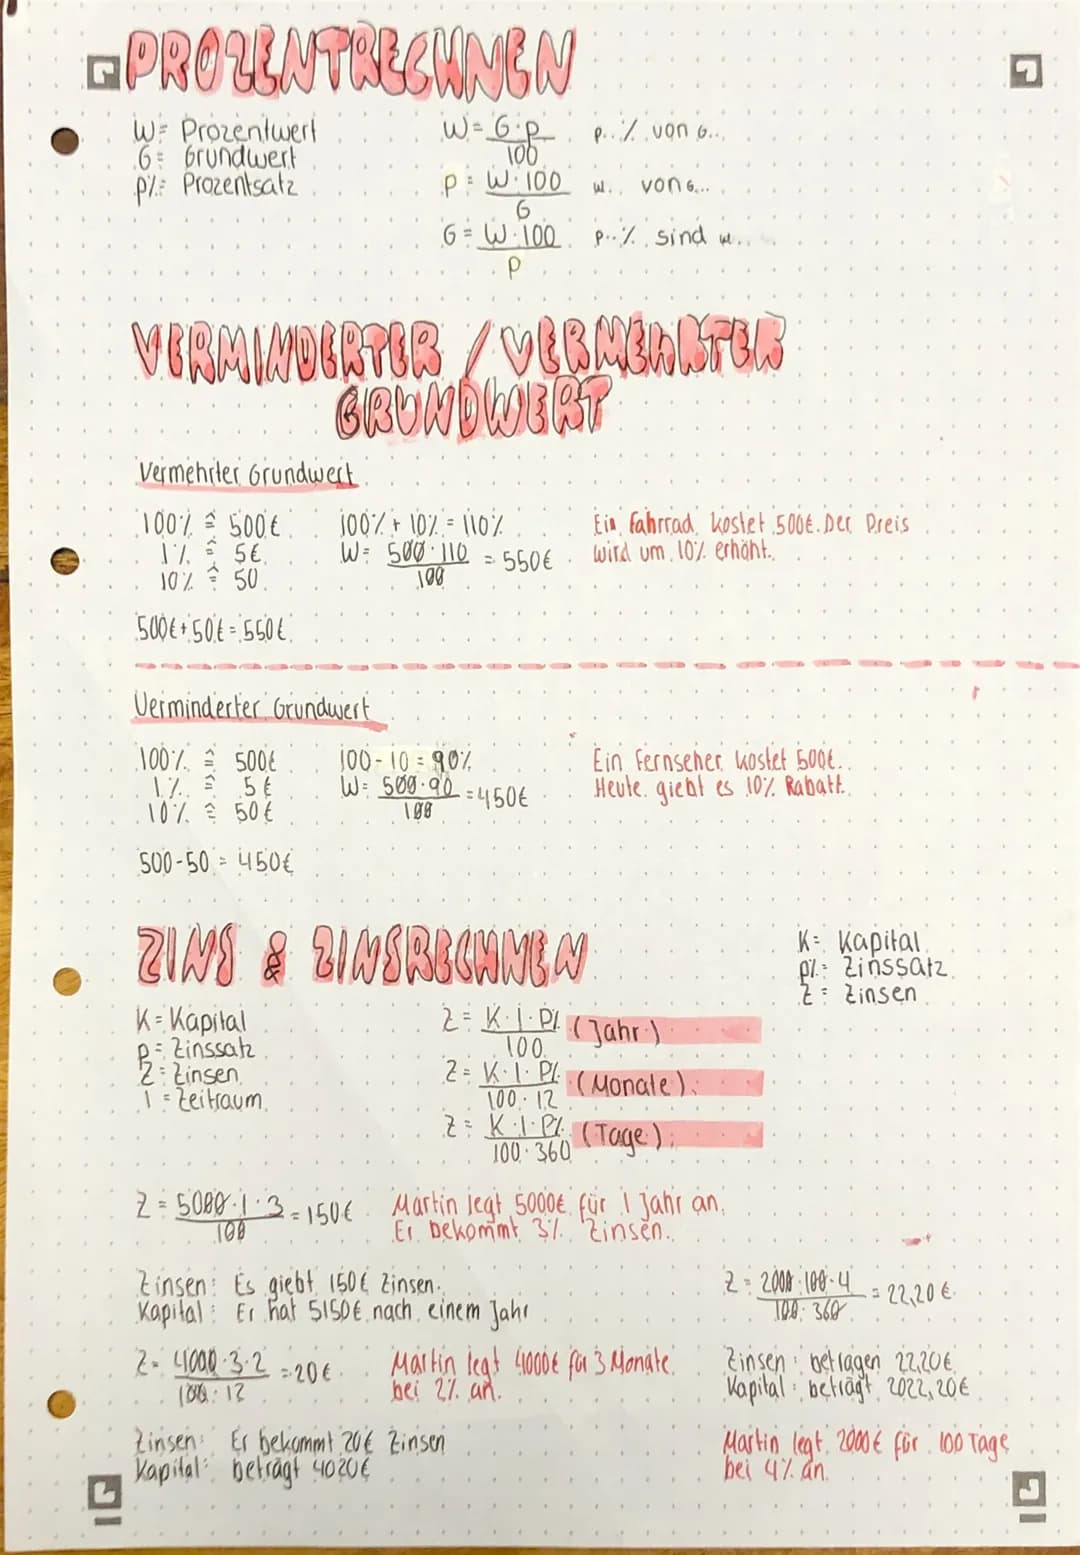 PROZENTRECHNEN
W= Prozentwert
G= Grundwert
p%= Prozentsatz
W= G·p / 100 p..% von G...
p= W·100 / G W.. von G...
G= W·100 / p p..% sind W...
VERMINDERTER / VERMEHRTER
GRUNDWERT
Vermehrter Grundwert
100% ≙ 500€ 100% + 10% = 110% Ein Fahrrad kostet 500€. Der Preis
1% ≙ 5€ W= 500·110 / 100 = 550€ wird um 10% erhöht.
10% ≙ 50
500€+50€=550€
Verminderter Grundwert
100% ≙ 500€ 100-10=90% Ein Fernseher kostet 500€.
1% ≙ 5€ W= 500·90 / 100 =450€ Heute giebt es 10% Rabatt.
10% ≙ 50€
500-50= 450€
ZINS & ZINSRECHNEN
K= Kapital
p%= Zinssatz
Z= Zinsen
K= Kapital
p= Zinssatz
Z= Zinsen
I= Zeitraum
Z= K·I·P% / 100 (Jahr)
Z= K·I·P% / 100·12 (Monate)
Z= K·I·P% / 100·360 (Tage)
Z= 5000·1·3 / 100 =150€ Martin legt 5000€ für 1 Jahr an.
Er bekommt 3% Zinsen.
Zinsen: Es giebt 150€ Zinsen.
Kapital: Er hat 5150€ nach einem Jahr
Z= 4000·3·2 / 100·12 =20€ Martin legt 4000€ für 3 Monate
bei 2% an.
Zinsen: Er bekommt 20€ Zinsen
Kapital: beträgt 4020€
Z= 2000·100·4 / 100·360 = 22,20€
Zinsen: betragen 22,20€
Kapital: beträgt 2022,20€
Martin legt 2000€ für 100 Tage
bei 4% an.